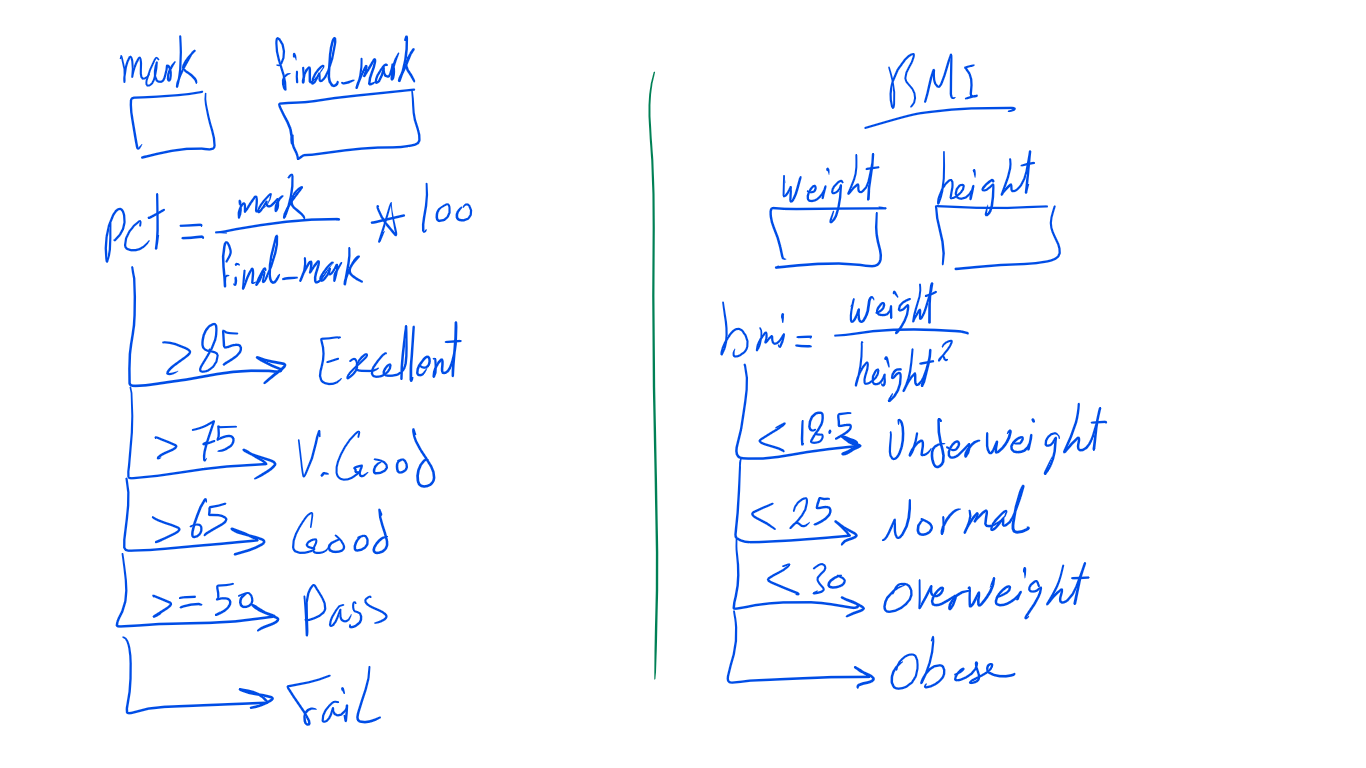 mark final_mark
pct = mark / final_mark * 100
>85 Excellent
> 75 V.Good
> 65 Good
>= 50 Pass
Fail
BMI
weight height
bmi = weight / height²
< 18.5 Underweight
< 25 Normal
< 30 Overweight
Obese